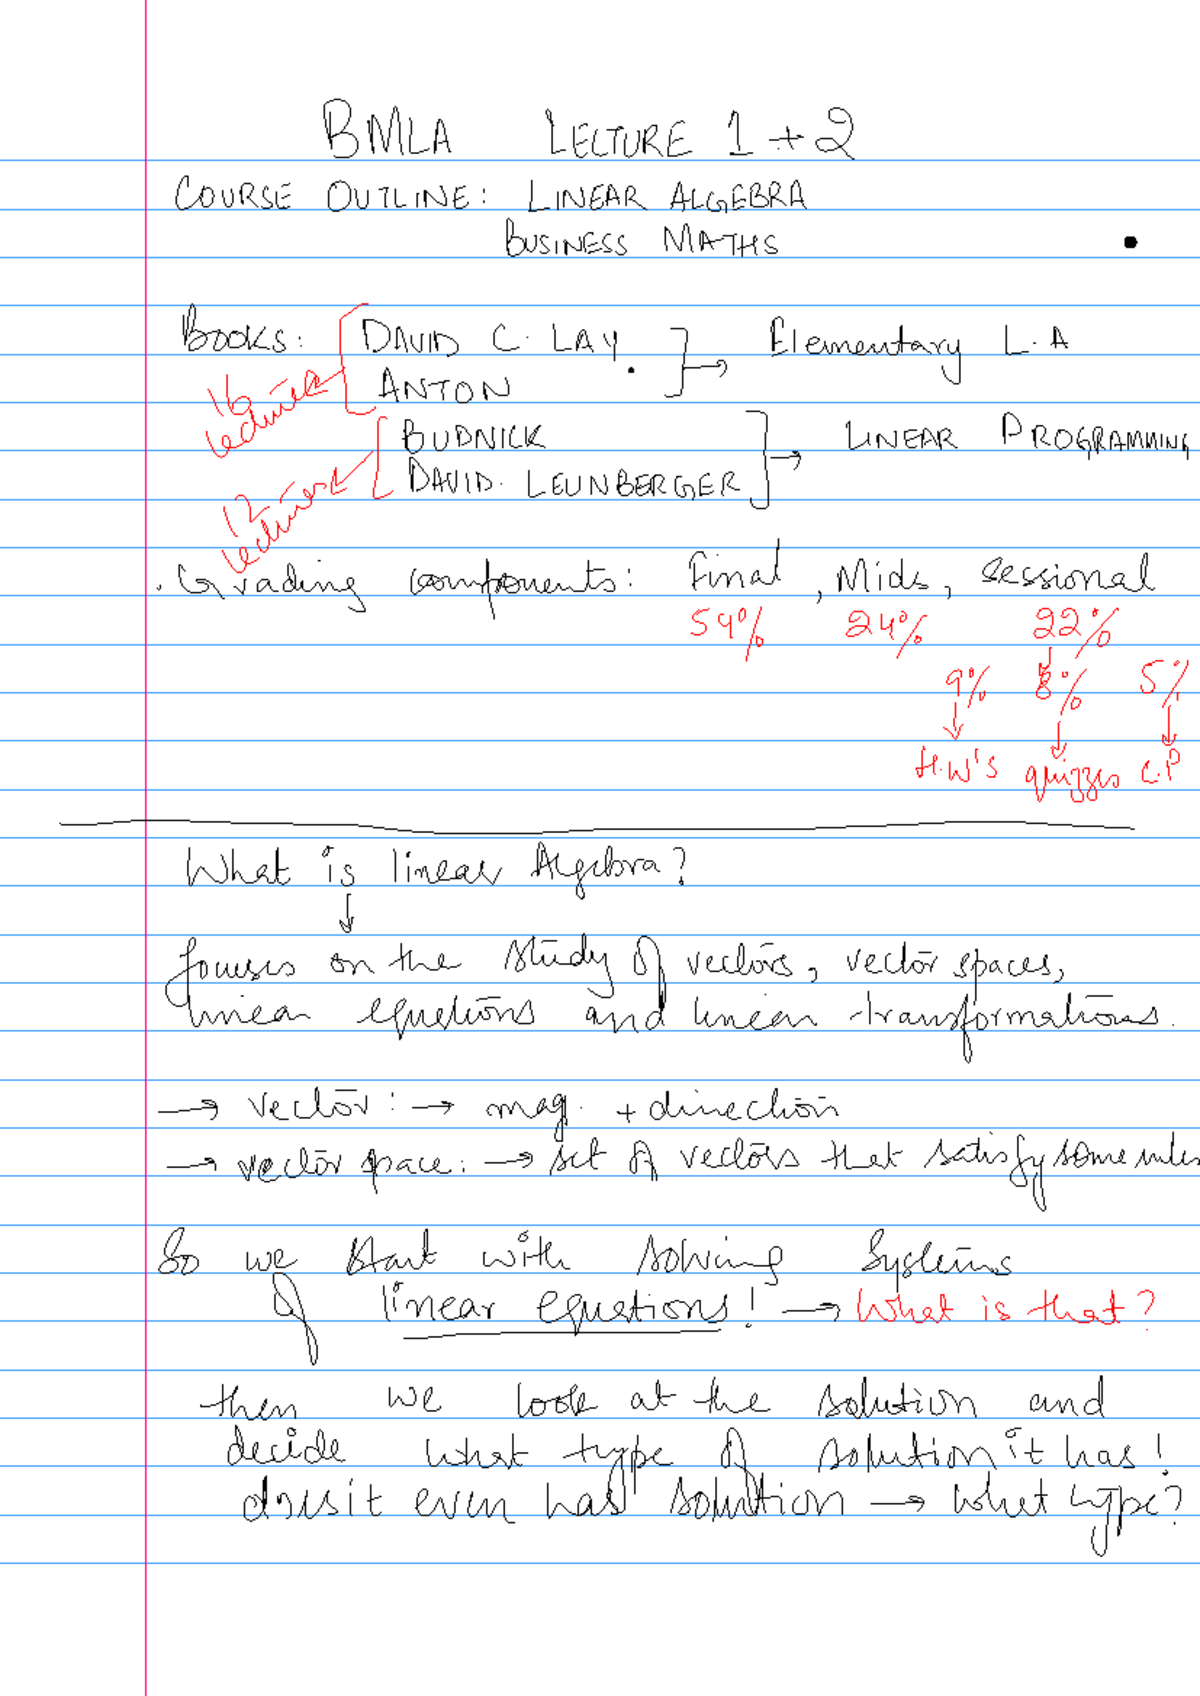 BMLA LECTURE 1 + 2
COURSE OUTLINE: LINEAR ALGEBRA
BUSINESS MATHS
BOOKS: DAVID C. LAY → Elementary L.A
ANTON
16 lectures
BUDNICK → LINEAR PROGRAMMING
DAVID. LEUNBERGER
12 lectures
. Grading components: Final, Mids, sessional
54% 24% 22%
9% 8% 5%
H.W's quizzes C.P
What is linear Algebra?
↓
focuses on the study of vectors, vector spaces,
linear equations and linear transformations.
→ vector: → mag. + direction
→ vector space: → set of vectors that satisfy some rules
So we start with solving systems
of linear equations! → What is that?
then we look at the solution and
decide what type of solution it has!
does it even has solution → what type?